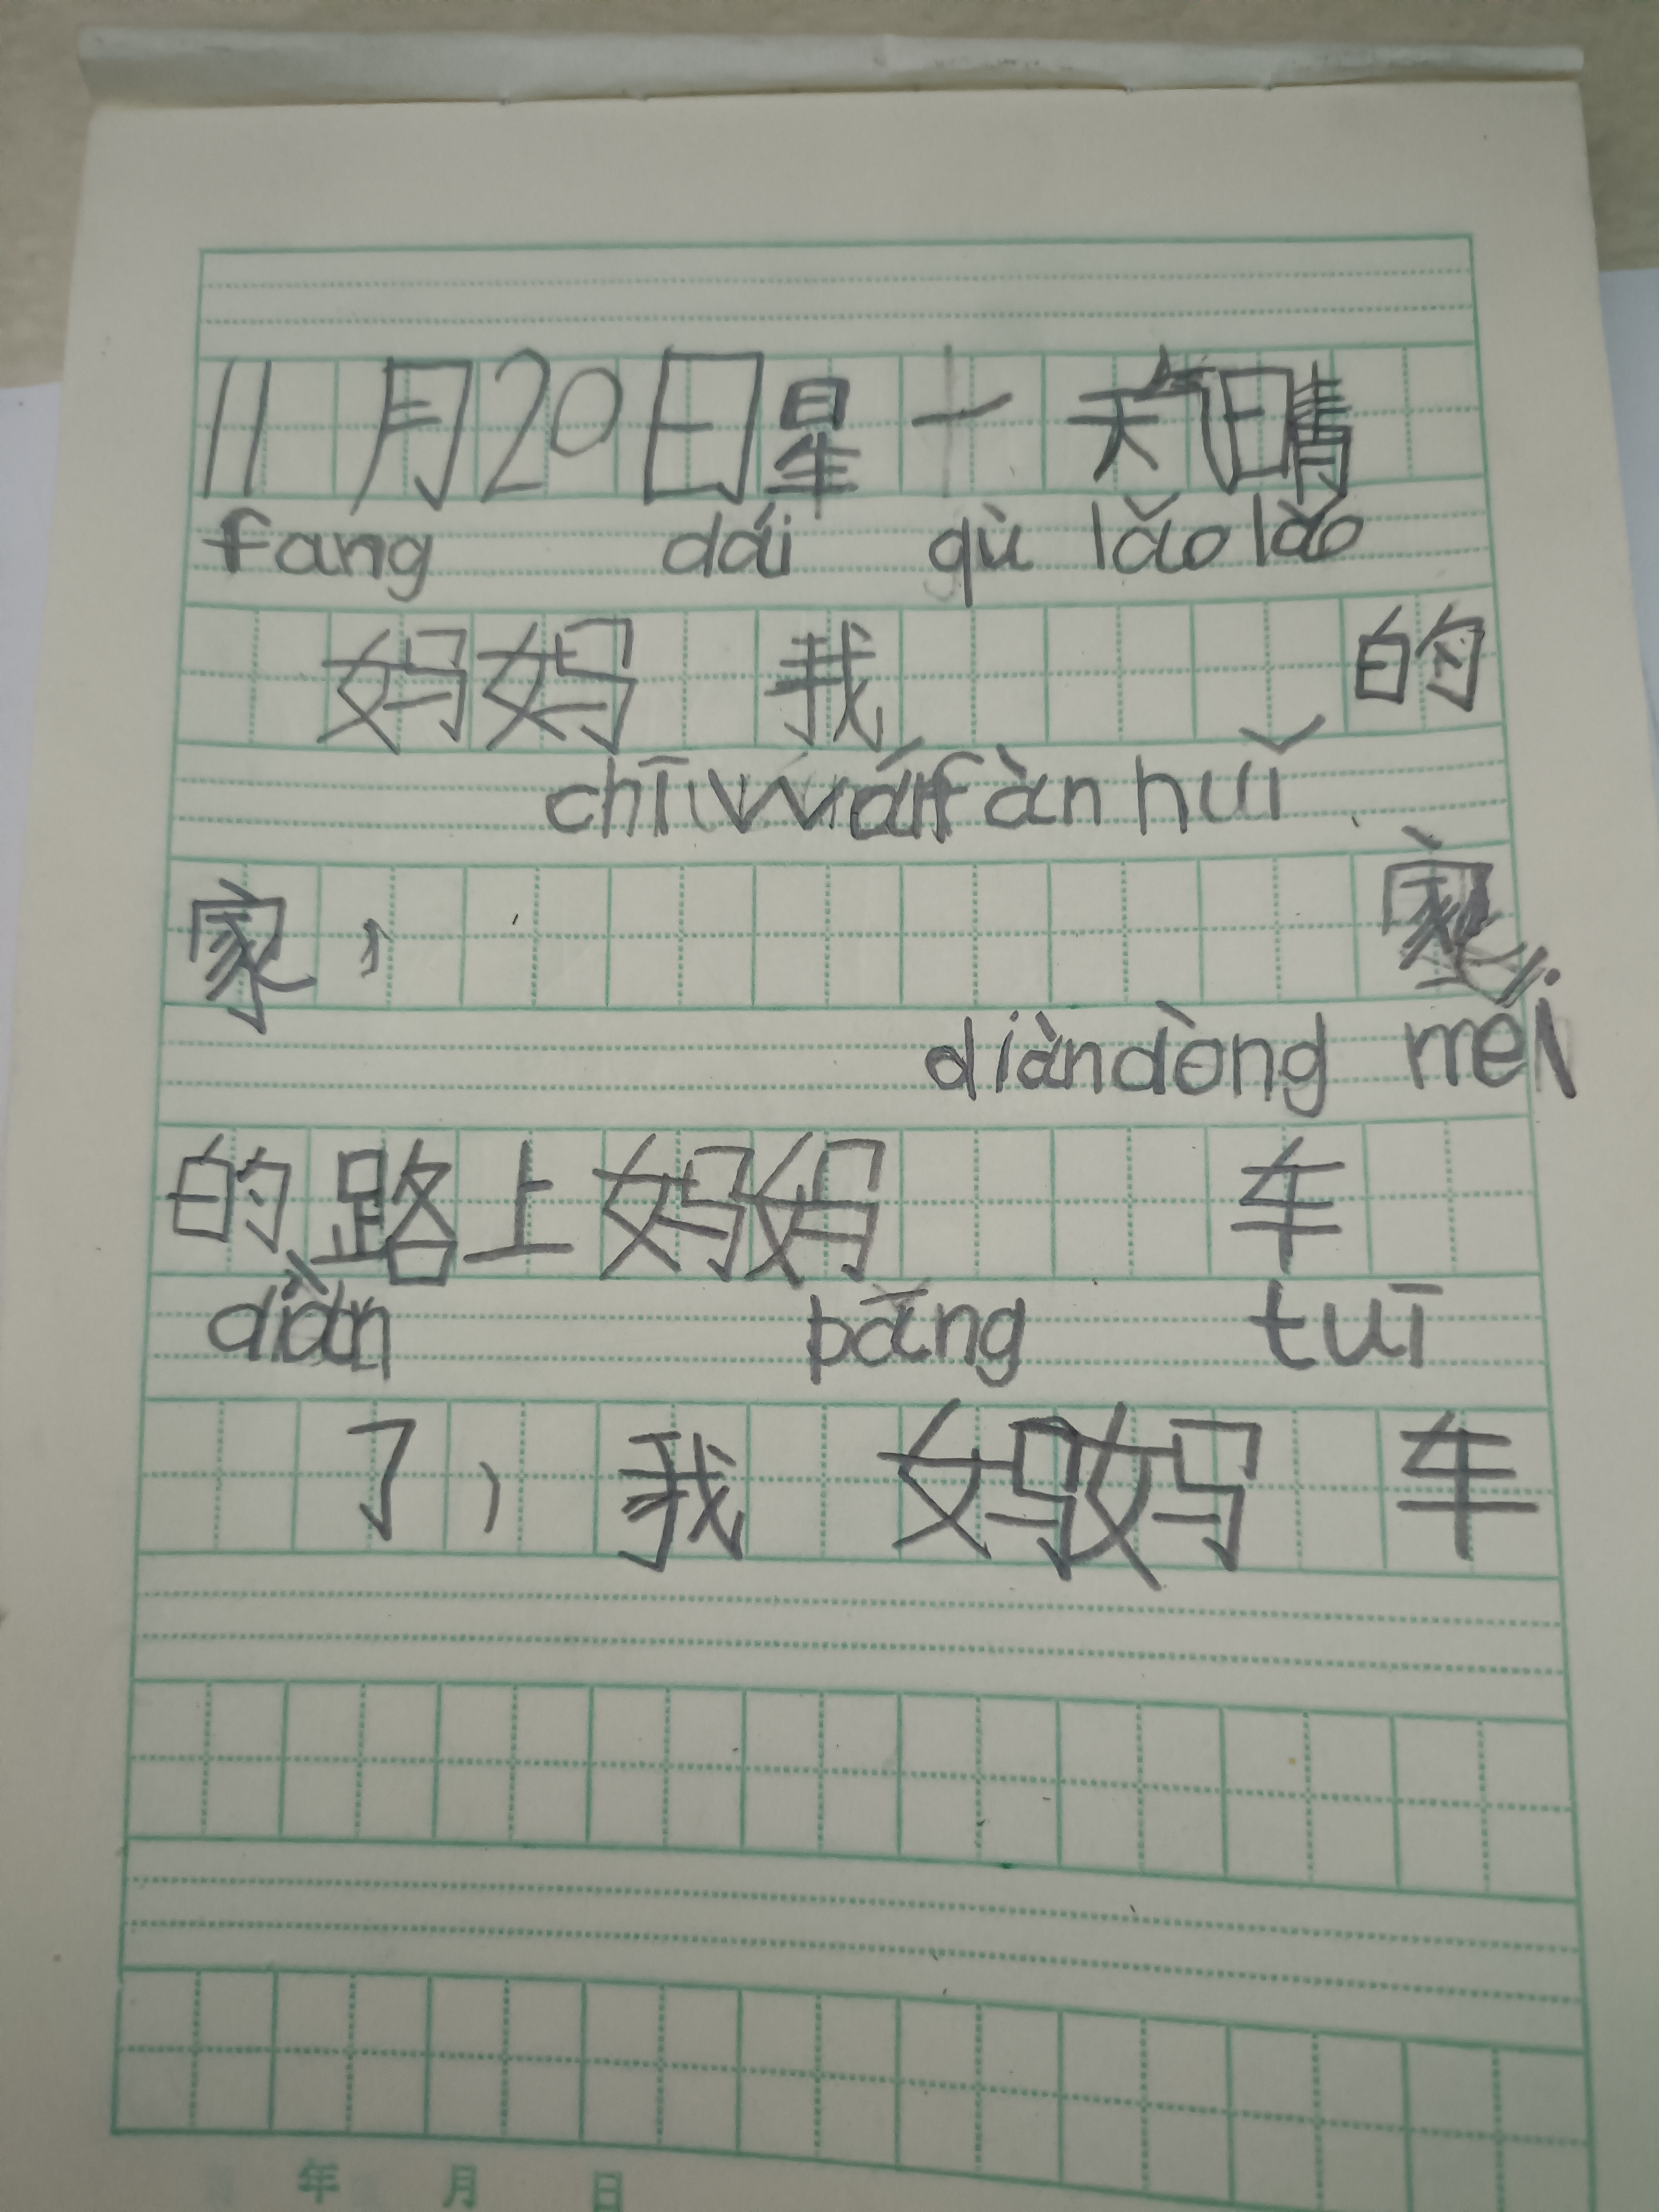 11月20日星一天气晴
fang dái qù lǎolǎo
妈妈 我 的
chīwánfàn huǐ
家，
家
diàndòng méi
的路上妈妈 车
diàn bāng tuī
了，我 妈妈 车
年 月 日